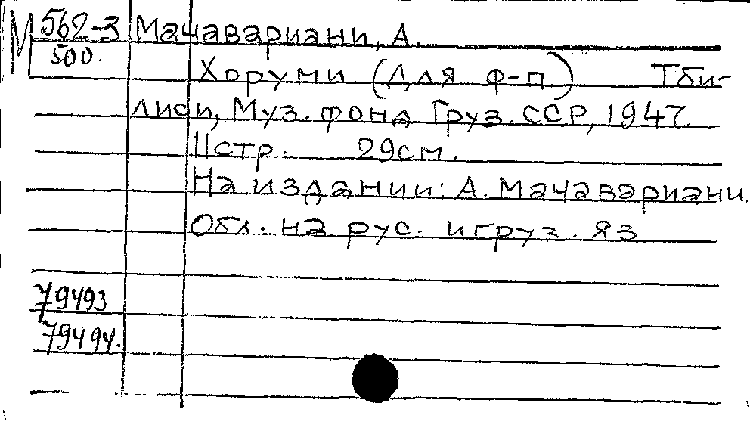 М 562-3 Мачавариани, А.
500.
Хоруми (Для ф-п) Тби-
лиси, Муз. фонд Груз. ССР, 1947.
11стр. 29см.
На издании: А. Мачавариани.
Обл. на рус. и груз. яз
79493
79494.